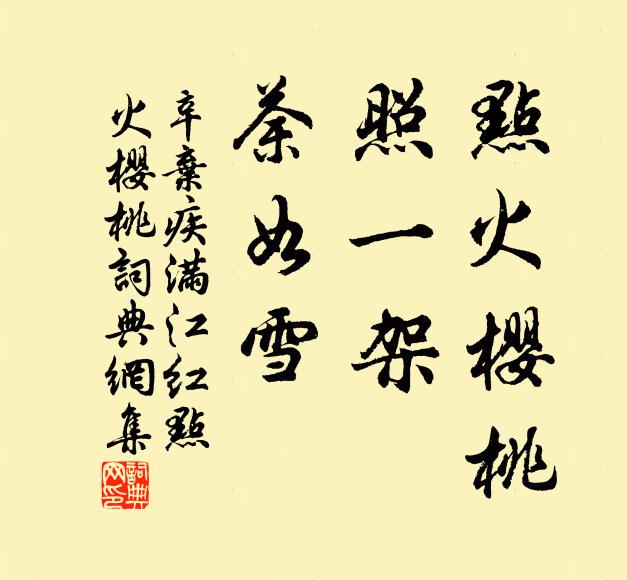 點火櫻桃
照一架
荼如雪
辛棄疾滿江紅點
火櫻桃詞典網集
詞典網印